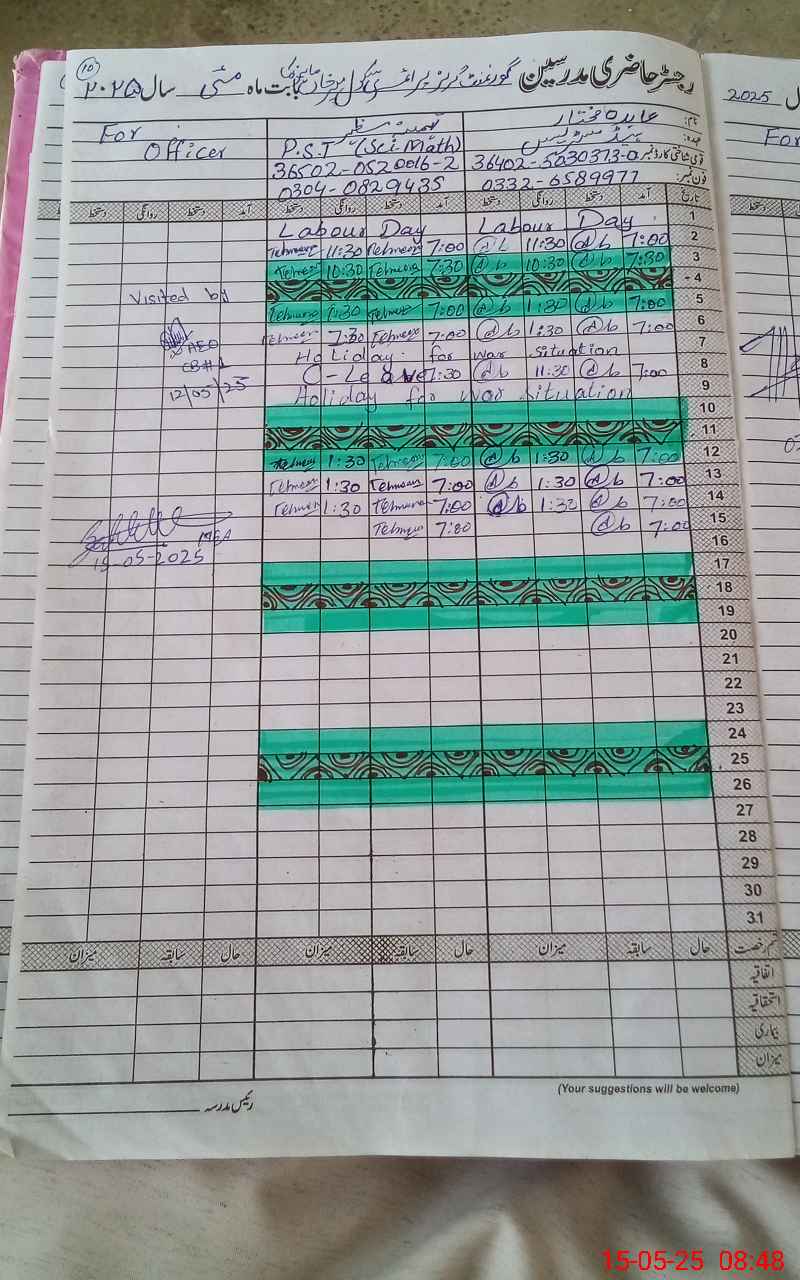 ۱۰
رجسٹر حاضری مدرسین گورنمنٹ گرلز پرائمری سکول بابت ماہ مئی سال ۲۰۲۵
2025 ل
For Officer
P.S.T (Sci. Math)
نام: عابدہ مختار
عہدہ: ہیڈ مسٹریس
قومی شناختی کارڈ نمبر: 36402-5030373-0
36502-0520016-2
فون نمبر: 0332-6589977
0304-0829435
For
تاریخ آمد دستخط روانگی دستخط آمد دستخط روانگی دستخط آمد دستخط روانگی دستخط
1 Labour Day Labour Day
2 7:00 @b 11:30 @b 7:00 Tehmeena 11:30 Tehmeena
3 7:30 @b 10:30 @b 7:30 Tehmeena 10:30 Tehmeena
4
5 7:00 @b 1:30 @b 7:00 Tehmeena 1:30 Tehmeena
6 7:00 @b 1:30 @b 7:00 Tehmeena 1:30 Tehmeena
7 Holiday for war situation
8 7:00 @b 11:30 @b 7:30 C-Leave
9 Holiday for war situation
10
11
12 7:00 @b 1:30 @b 7:00 Tehmeena 1:30 Tehmeena
13 7:00 @b 1:30 @b 7:00 Tehmeena 1:30 Tehmeena
14 7:00 @b 1:30 @b 7:00 Tehmeena 1:30 Tehmeena
15 7:00 @b 7:00 Tehmeena
16
17
18
19
20
21
22
23
24
25
26
27
28
29
30
31
Visited by
AEO
12/05/25
MEA
15-05-2025
قسم رخصت حال سابقہ میزان حال سابقہ میزان حال سابقہ میزان
اتفاقیہ
استحقاقیہ
بیماری
میزان
(Your suggestions will be welcome)
رئیس مدرسہ
15-05-25 08:48